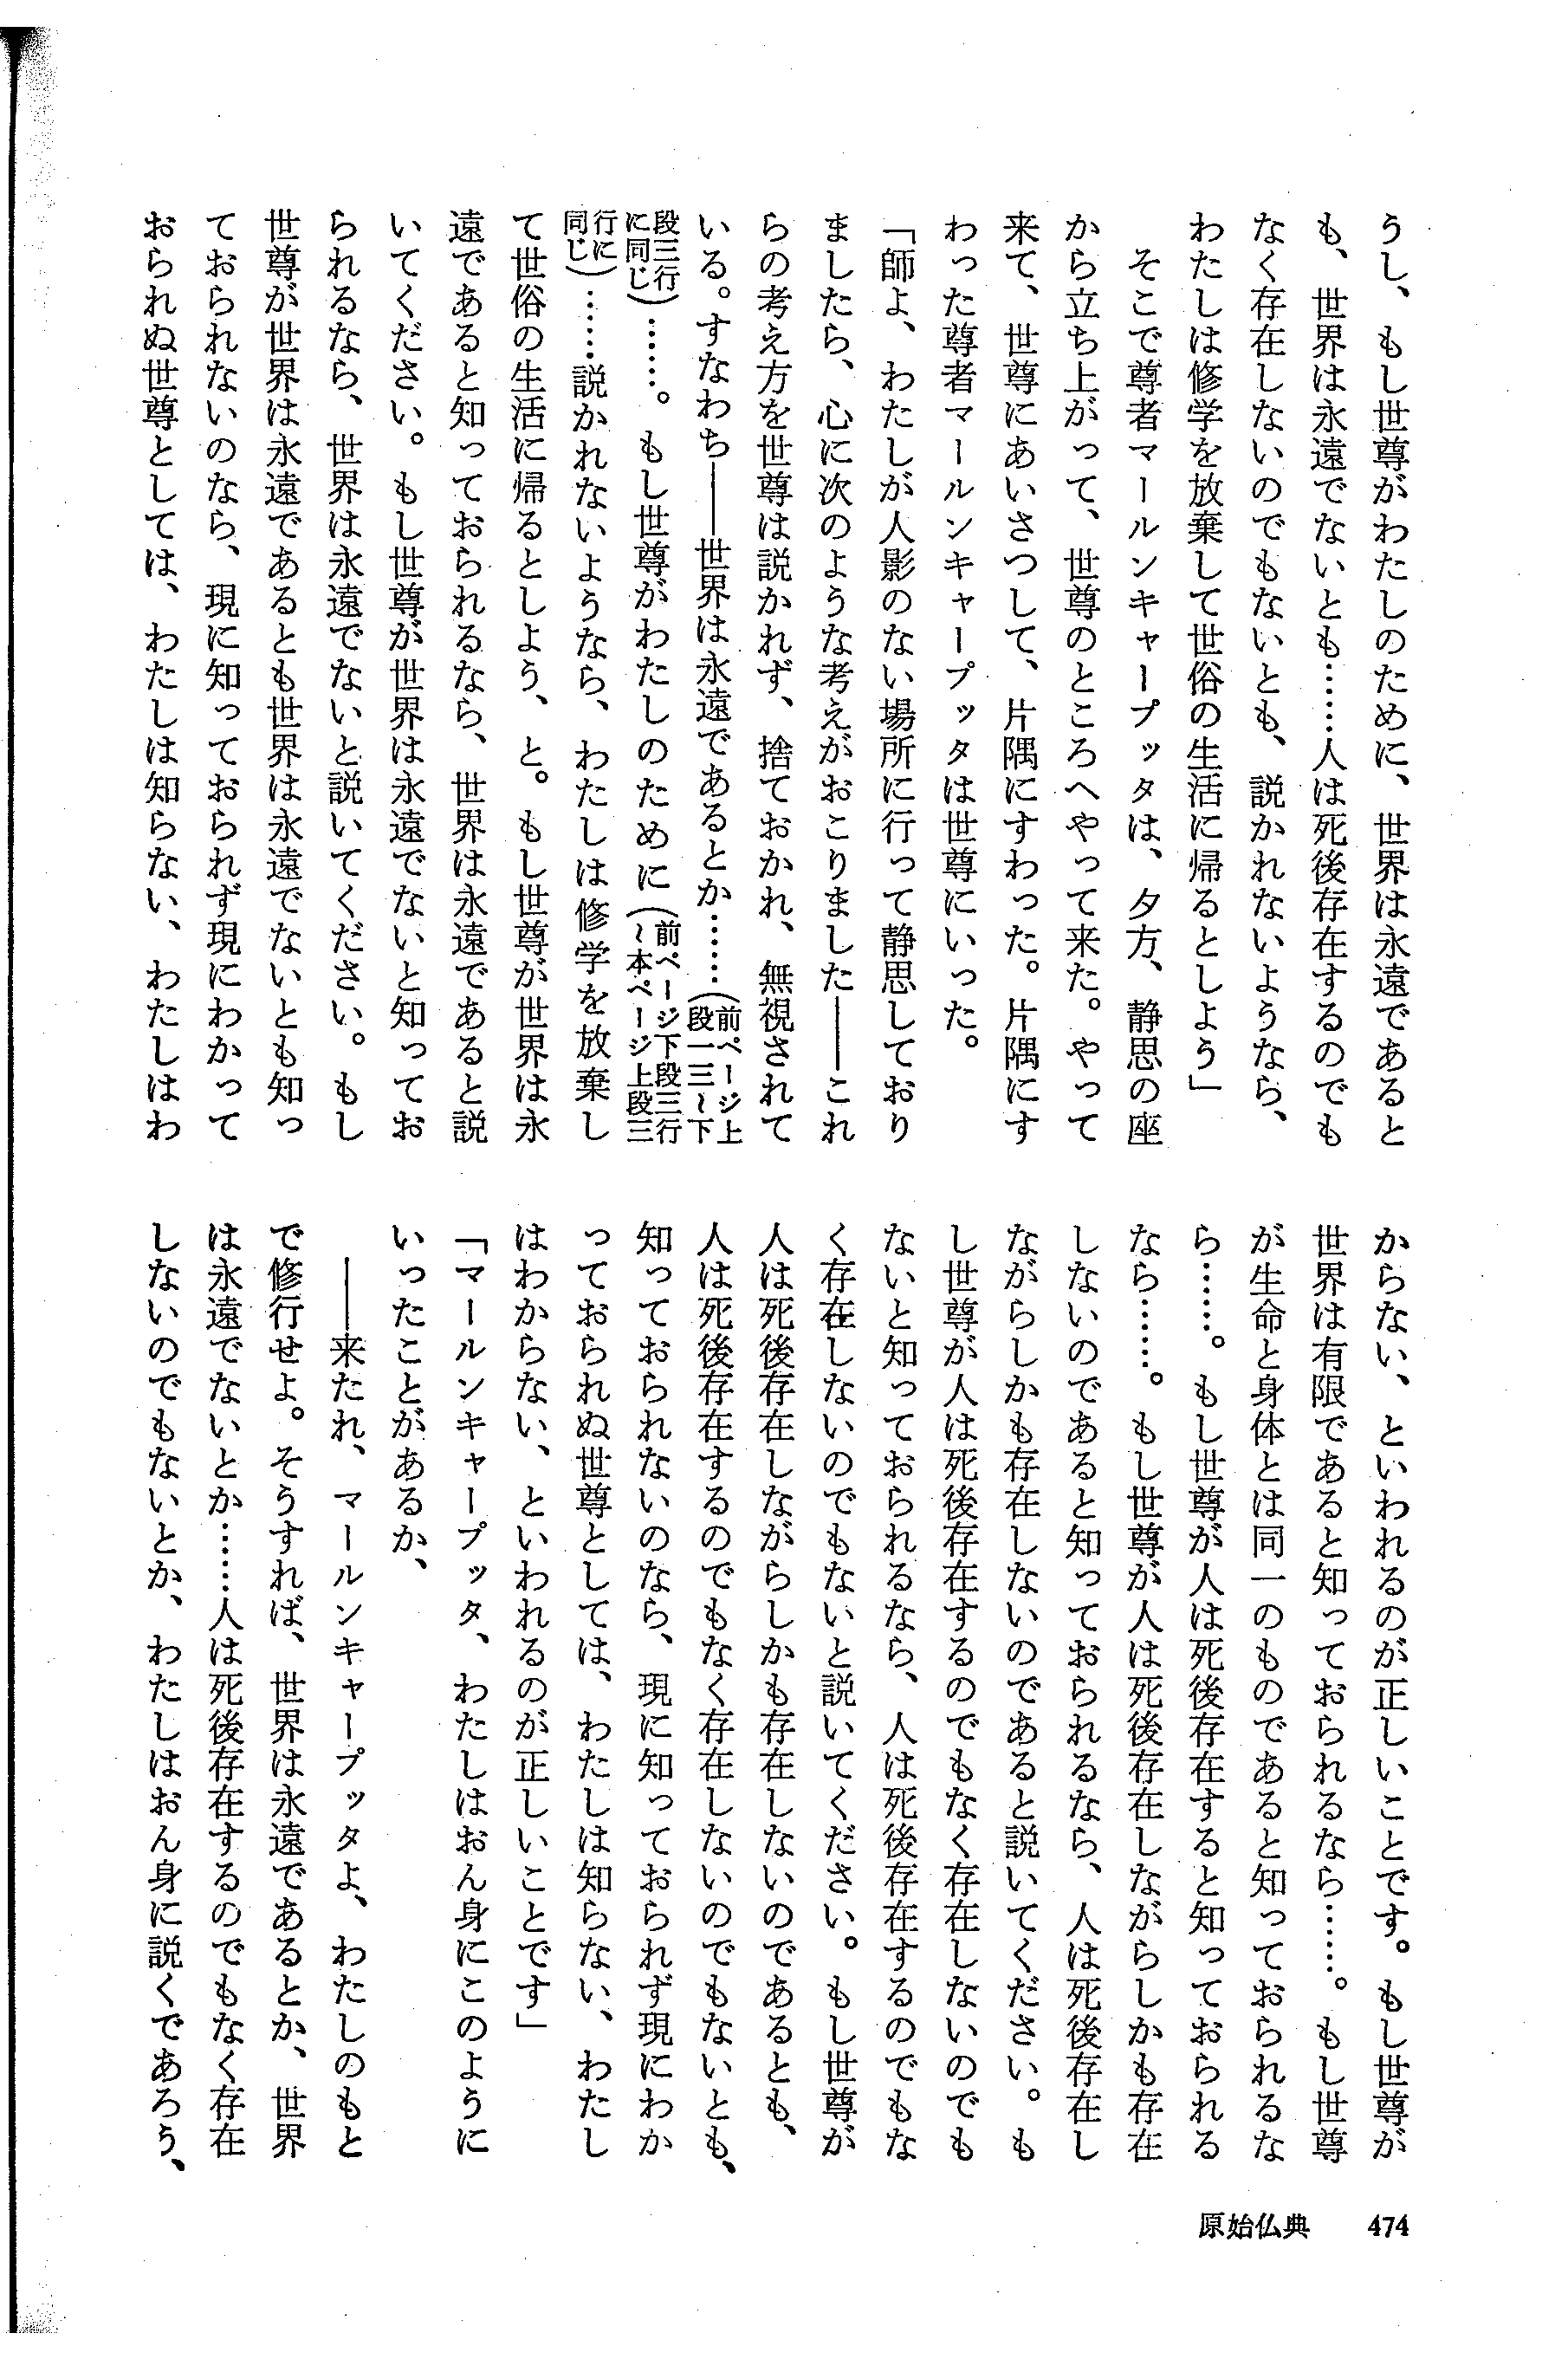 うし、もし世尊がわたしのために、世界は永遠であると
も、世界は永遠でないとも……人は死後存在するのでも
なく存在しないのでもないとも、説かれないようなら、
わたしは修学を放棄して世俗の生活に帰るとしよう」
　そこで尊者マールンキャープッタは、夕方、静思の座
から立ち上がって、世尊のところへやって来た。やって
来て、世尊にあいさつして、片隅にすわった。片隅にす
わった尊者マールンキャープッタは世尊にいった。
「師よ、わたしが人影のない場所に行って静思しており
ましたら、心に次のような考えがおこりました――これ
らの考え方を世尊は説かれず、捨ておかれ、無視されて
いる。すなわち――世界は永遠であるとか……（前ページ上段一三～下
段三行に同じ）……。もし世尊がわたしのために（前ページ下段三行～本ページ上段三
行に同じ）……説かれないようなら、わたしは修学を放棄し
て世俗の生活に帰るとしよう、と。もし世尊が世界は永
遠であると知っておられるなら、世界は永遠であると説
いてください。もし世尊が世界は永遠でないと知ってお
られるなら、世界は永遠でないと説いてください。もし
世尊が世界は永遠であるとも世界は永遠でないとも知っ
ておられないのなら、現に知っておられず現にわかって
おられぬ世尊としては、わたしは知らない、わたしはわ
からない、といわれるのが正しいことです。もし世尊が
世界は有限であると知っておられるなら……。もし世尊
が生命と身体とは同一のものであると知っておられるな
ら……。もし世尊が人は死後存在すると知っておられる
なら……。もし世尊が人は死後存在しながらしかも存在
しないのであると知っておられるなら、人は死後存在し
ながらしかも存在しないのであると説いてください。も
し世尊が人は死後存在するのでもなく存在しないのでも
ないと知っておられるなら、人は死後存在するのでもな
く存在しないのでもないと説いてください。もし世尊が
人は死後存在しながらしかも存在しないのであるとも、
人は死後存在するのでもなく存在しないのでもないとも、
知っておられないのなら、現に知っておられず現にわか
っておられぬ世尊としては、わたしは知らない、わたし
はわからない、といわれるのが正しいことです」
「マールンキャープッタ、わたしはおん身にこのように
いったことがあるか、
　――来たれ、マールンキャープッタよ、わたしのもと
で修行せよ。そうすれば、世界は永遠であるとか、世界
は永遠でないとか……人は死後存在するのでもなく存在
しないのでもないとか、わたしはおん身に説くであろう、
原始仏典　474